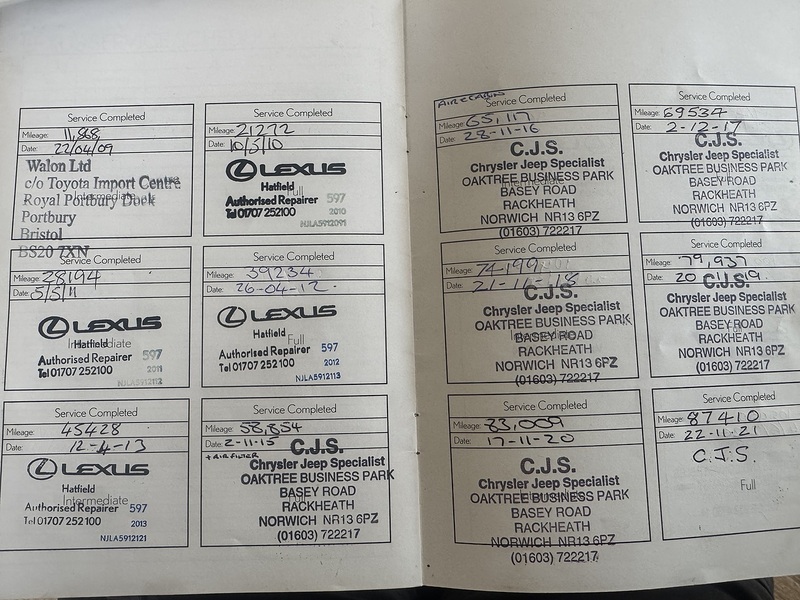 Service Completed
Mileage: 11,868
Date: 22/04/09
Walon Ltd
c/o Toyota Import Centre
Royal Portbury Dock
Intermediate
Portbury
Bristol
BS20 7XN
Service Completed
Mileage: 21272
Date: 10/5/10
LEXUS
Hatfield
Full
Authorised Repairer 597
Tel 01707 252100 2010
NJLA5912091
Service Completed
Mileage: 28194
Date: 5/5/11
LEXUS
Hatfield
Intermediate
Authorised Repairer 597
Tel 01707 252100 2011
NJLA5912112
Service Completed
Mileage: 39234
Date: 26-04-12.
LEXUS
Hatfield
Full
Authorised Repairer 597
Tel 01707 252100 2012
NJLA5912113
Service Completed
Mileage: 45428
Date: 12-4-13
LEXUS
Hatfield
Intermediate
Authorised Repairer 597
Tel 01707 252100 2013
NJLA5912121
Service Completed
Mileage: 58,854
Date: 2-11-15
+ AIR FILTER
C.J.S.
Chrysler Jeep Specialist
OAKTREE BUSINESS PARK
Full
BASEY ROAD
RACKHEATH
NORWICH NR13 6PZ
(01603) 722217
AIR & CABIN
Service Completed
Mileage: 63,117
Date: 28-11-16
C.J.S.
Chrysler Jeep Specialist
OAKTREE BUSINESS PARK
Intermediate
BASEY ROAD
RACKHEATH
NORWICH NR13 6PZ
(01603) 722217
Service Completed
Mileage: 69534
Date: 2-12-17
C.J.S.
Chrysler Jeep Specialist
OAKTREE BUSINESS PARK
Full
BASEY ROAD
RACKHEATH
NORWICH NR13 6PZ
(01603) 722217
Service Completed
Mileage: 74-199
Date: 21-11-18
C.J.S.
Chrysler Jeep Specialist
OAKTREE BUSINESS PARK
Intermediate
BASEY ROAD
RACKHEATH
NORWICH NR13 6PZ
(01603) 722217
Service Completed
Mileage: 79,937
Date: 20 19.
C.J.S.
Chrysler Jeep Specialist
OAKTREE BUSINESS PARK
Full
BASEY ROAD
RACKHEATH
NORWICH NR13 6PZ
(01603) 722217
Service Completed
Mileage: 83,009
Date: 17-11-20
C.J.S.
Chrysler Jeep Specialist
OAKTREE BUSINESS PARK
Intermediate
BASEY ROAD
RACKHEATH
NORWICH NR13 6PZ
(01603) 722217
Service Completed
Mileage: 87410
Date: 22-11-21
C.J.S.
Full